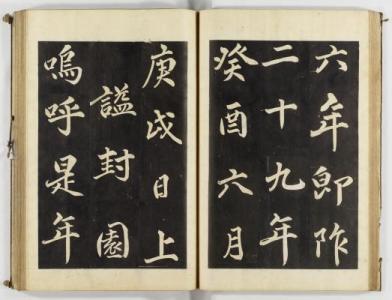 六年即阼
二十九年
癸酉六月
庚戌日上
謚封園
嗚呼是年